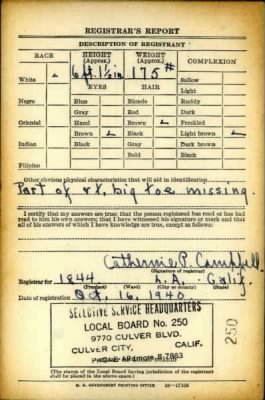 REGISTRAR'S REPORT
DESCRIPTION OF REGISTRANT
RACE HEIGHT (Approx.) WEIGHT (Approx.) COMPLEXION
6 ft. 1½ in 175#
White ✓ Sallow
EYES HAIR Light
Negro Blue Blonde Ruddy
Gray Red Dark
Oriental Hazel Brown ✓ Freckled
Brown ✓ Black Light brown ✓
Indian Black Gray Dark brown
Bald Black
Filipino
Other obvious physical characteristics that will aid in identification
Part of rt. big toe missing.
I certify that my answers are true; that the person registered has read or has had
read to him his own answers; that I have witnessed his signature or mark and that
all of his answers of which I have knowledge are true, except as follows:
Catherine P. Campbell
(Signature of registrar)
Registrar for 1844 L.A. Calif.
(Precinct) (Ward) (City or county) (State)
Date of registration Oct. 16, 1940
SELECTIVE SERVICE HEADQUARTERS
LOCAL BOARD No. 250
9770 CULVER BLVD.
CULVER CITY, CALIF.
PHONE ARdmore 8-7883
250
(The stamp of the Local Board having jurisdiction of the registrant
shall be placed in the above space.)
U. S. GOVERNMENT PRINTING OFFICE